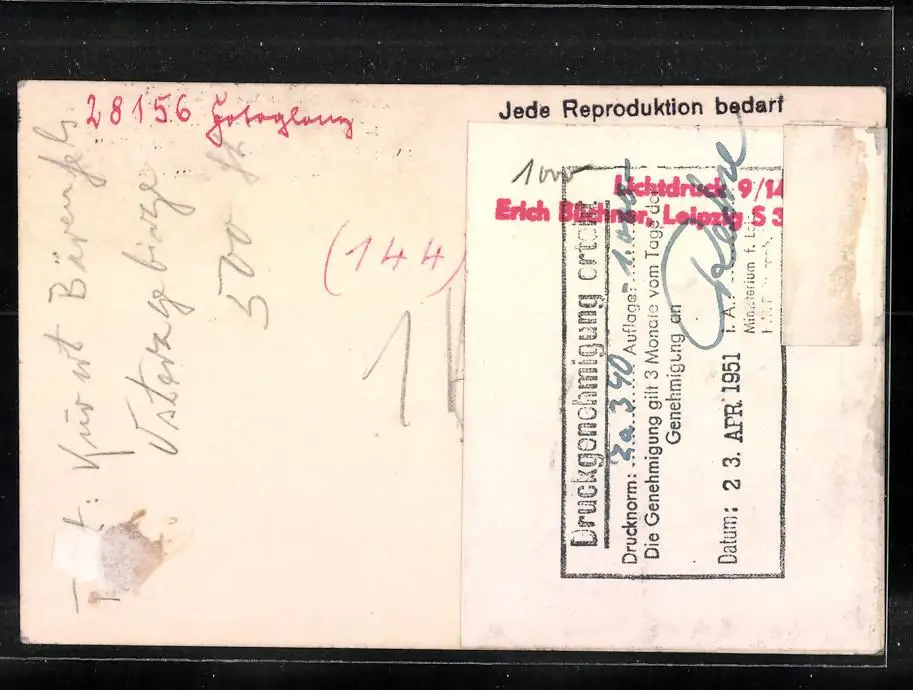 28156 Fotoglanz
Kurort Bärenfels
Osterzgebirge
500 St
(144)
Jede Reproduktion bedarf
1000
Lichtdruck 9/14
Erich Büchner, Leipzig S 3
Druckgenehmigung erteilt
Drucknorm: Za 340 Auflage: 1000
Die Genehmigung gilt 3 Monate vom Tage der
Genehmigung an
Datum: 23. APR. 1951 I. A.
Ministerium f.